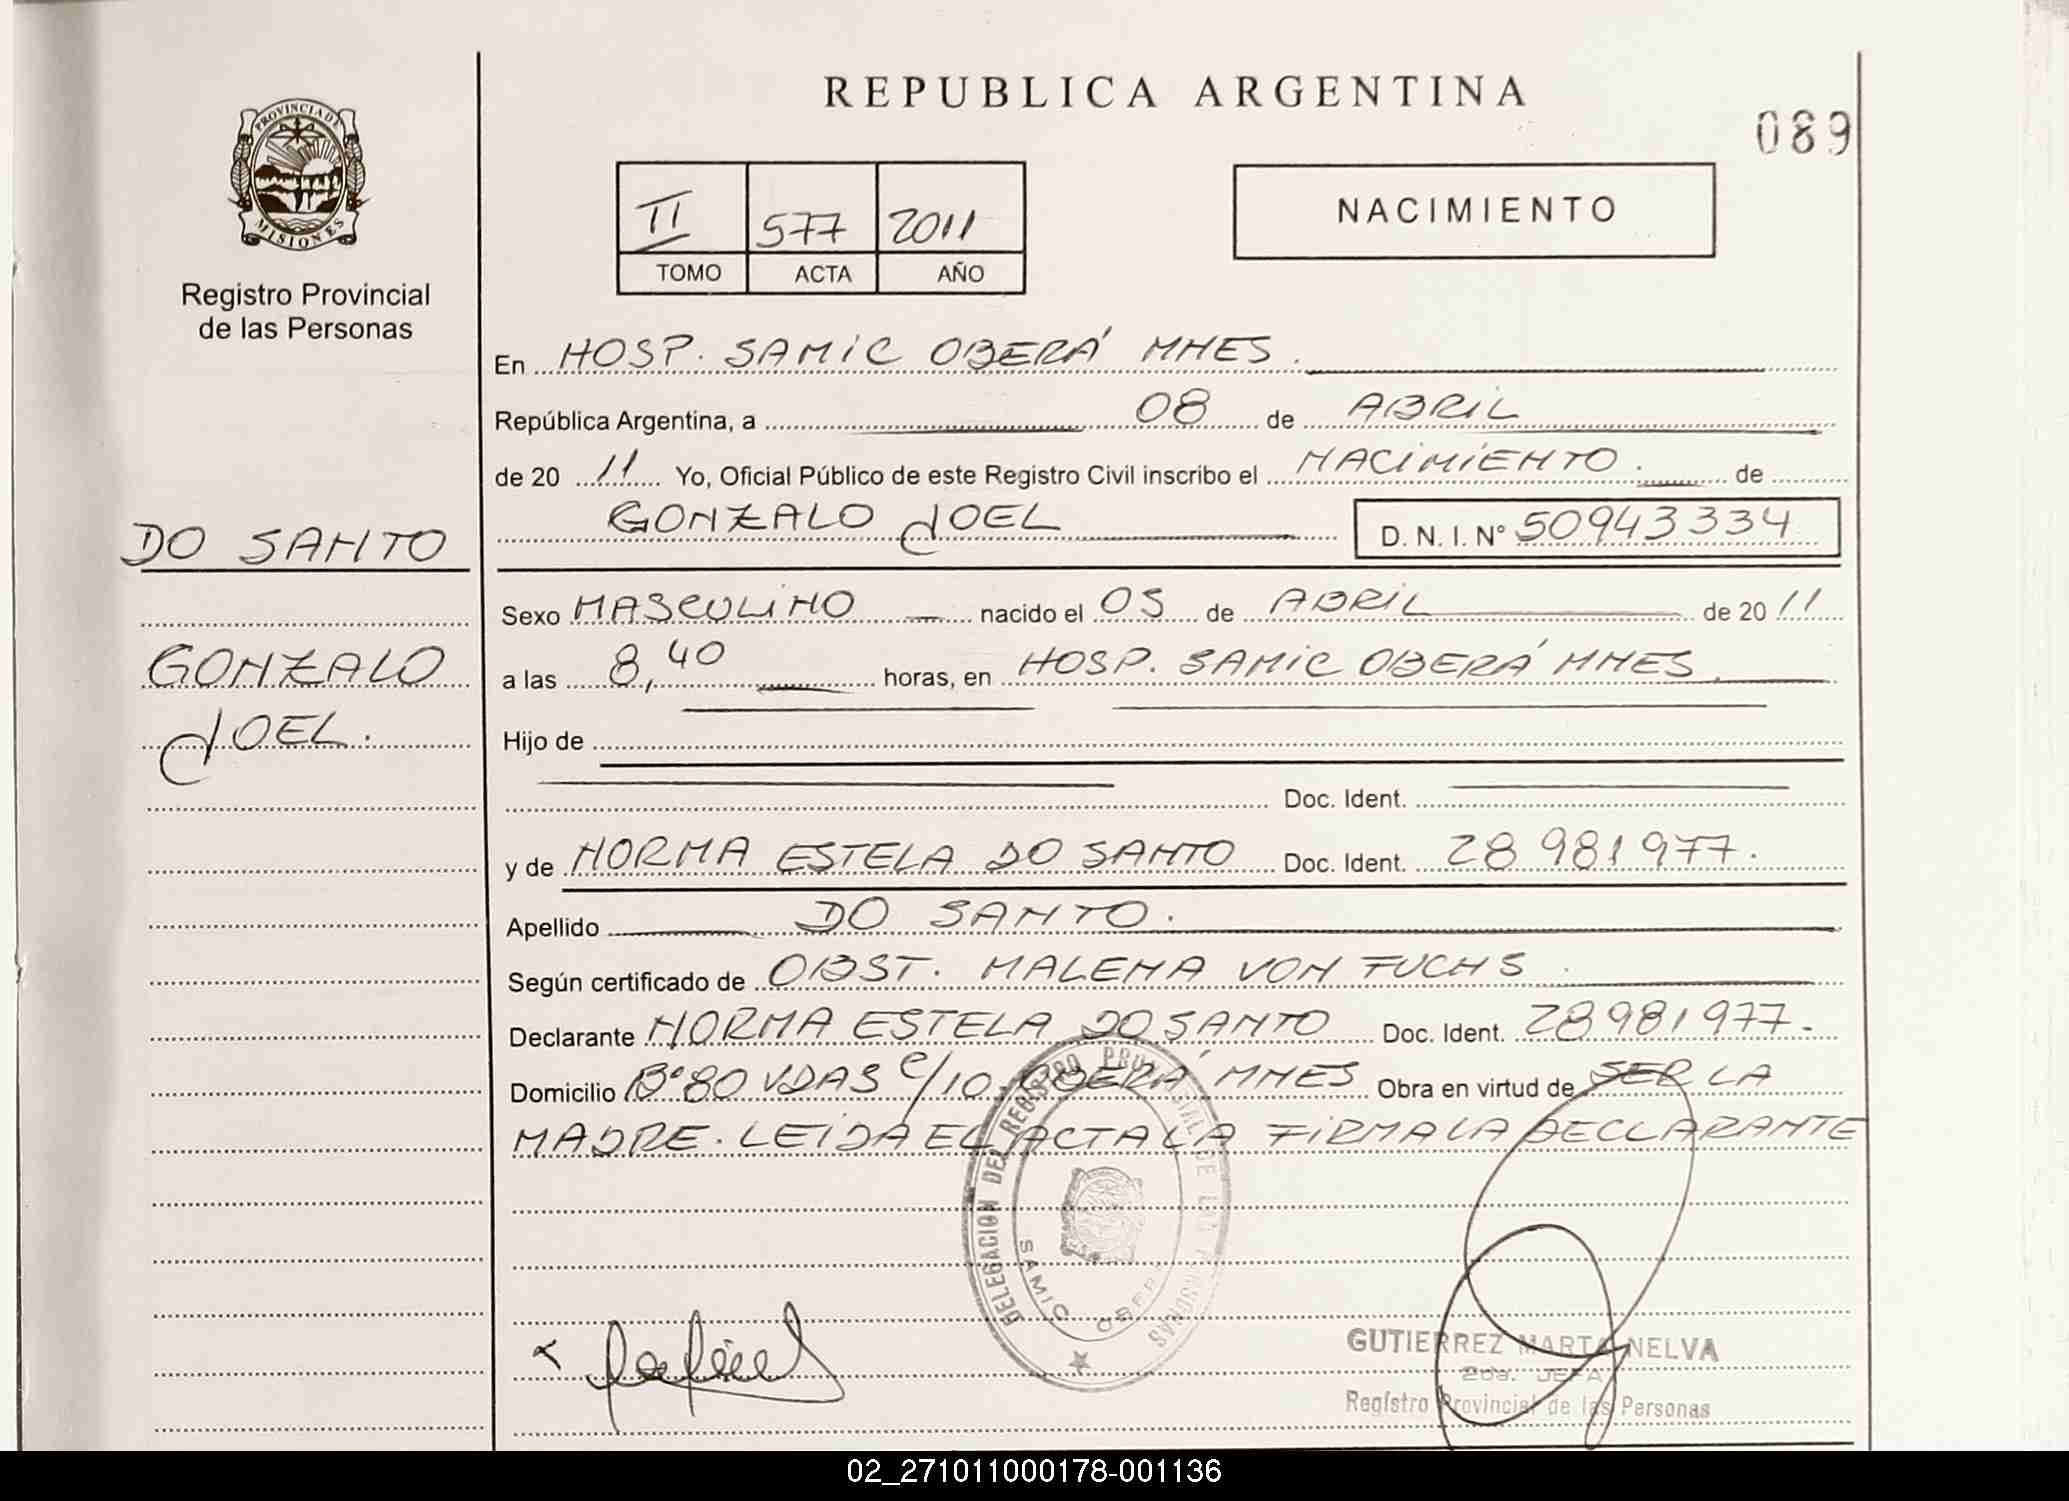 PROVINCIA DE
MISIONES
Registro Provincial
de las Personas
DO SANTO
GONZALO
JOEL.
REPUBLICA ARGENTINA
089
II 577 2011
TOMO ACTA AÑO
NACIMIENTO
En HOSP. SAMIC OBERÁ MNES.
República Argentina, a 08 de ABRIL
de 20 11 Yo, Oficial Público de este Registro Civil inscribo el NACIMIENTO. de
GONZALO JOEL D. N. I. N° 50943334
Sexo MASCULINO nacido el 05 de ABRIL de 20 11
a las 8,40 horas, en HOSP. SAMIC OBERÁ MNES.
Hijo de
Doc. Ident.
y de NORMA ESTELA DO SANTO Doc. Ident. 28 981 977.
Apellido DO SANTO.
Según certificado de OBST. MALENA VON FUCHS
Declarante NORMA ESTELA DO SANTO Doc. Ident. 28 981 977.
Domicilio B° 80 VDAS C/10. OBERÁ MNES Obra en virtud de SER LA
MADRE. LEIDA EL ACTA LA FIRMA LA DECLARANTE
DELEGACION DEL REGISTRO PROVINCIAL DE LAS PERSONAS
SAMIC OBERA
GUTIERREZ MARTA NELVA
2da. JEFA
Registro Provincial de las Personas
02_271011000178-001136